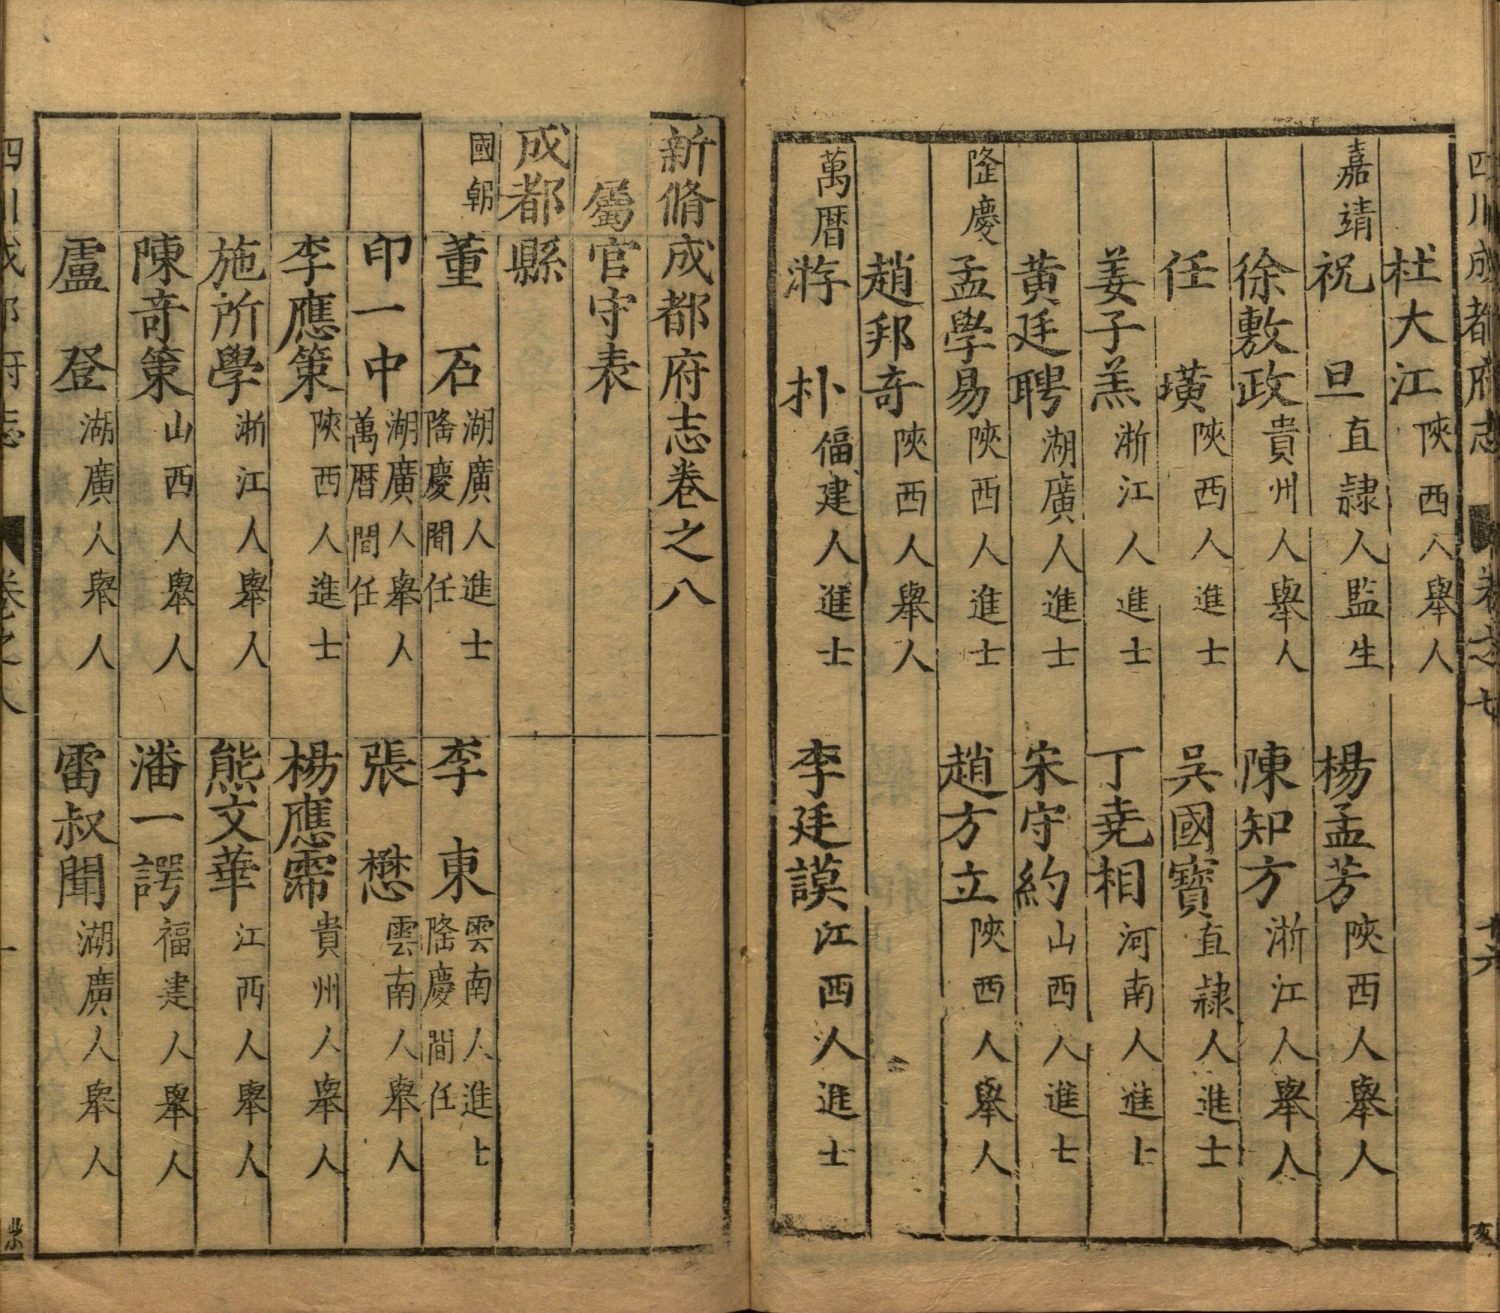 四川成都府志 卷之七 十六
杜大江 陝西人舉人
嘉靖 祝旦 直隸人監生 楊孟芳 陝西人舉人
徐敷政 貴州人舉人 陳知方 浙江人舉人
任璜 陝西人進士 吳國寶 直隸人進士
姜子羔 浙江人進士 丁堯相 河南人進士
黃廷聘 湖廣人進士 宋守約 山西人進士
隆慶 孟學易 陝西人進士 趙方立 陝西人舉人
趙邦奇 陝西人舉人
萬曆 游朴 福建人進士 李廷謨 江西人進士
新脩成都府志卷之八
屬官守表
成都縣
國朝 董石 湖廣人進士隆慶間任 李東 雲南人進士隆慶間任
印一中 湖廣人舉人萬曆間任 張懋 雲南人舉人
李應策 陝西人進士 楊應霈 貴州人舉人
施所學 浙江人舉人 熊文華 江西人舉人
陳奇策 山西人舉人 潘一諤 福建人舉人
盧登 湖廣人舉人 雷叔聞 湖廣人舉人
四川成都府志 卷之八 一